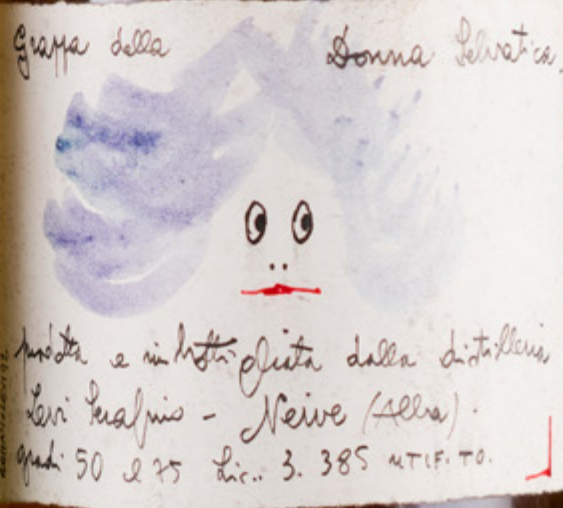 Grappa della Donna Selvatica
prodotta e imbottigliata dalla distilleria
Levi Serafino - Neive (Alba).
gradi 50 cl 75 Lic.. 3.385 UTIF. TO.